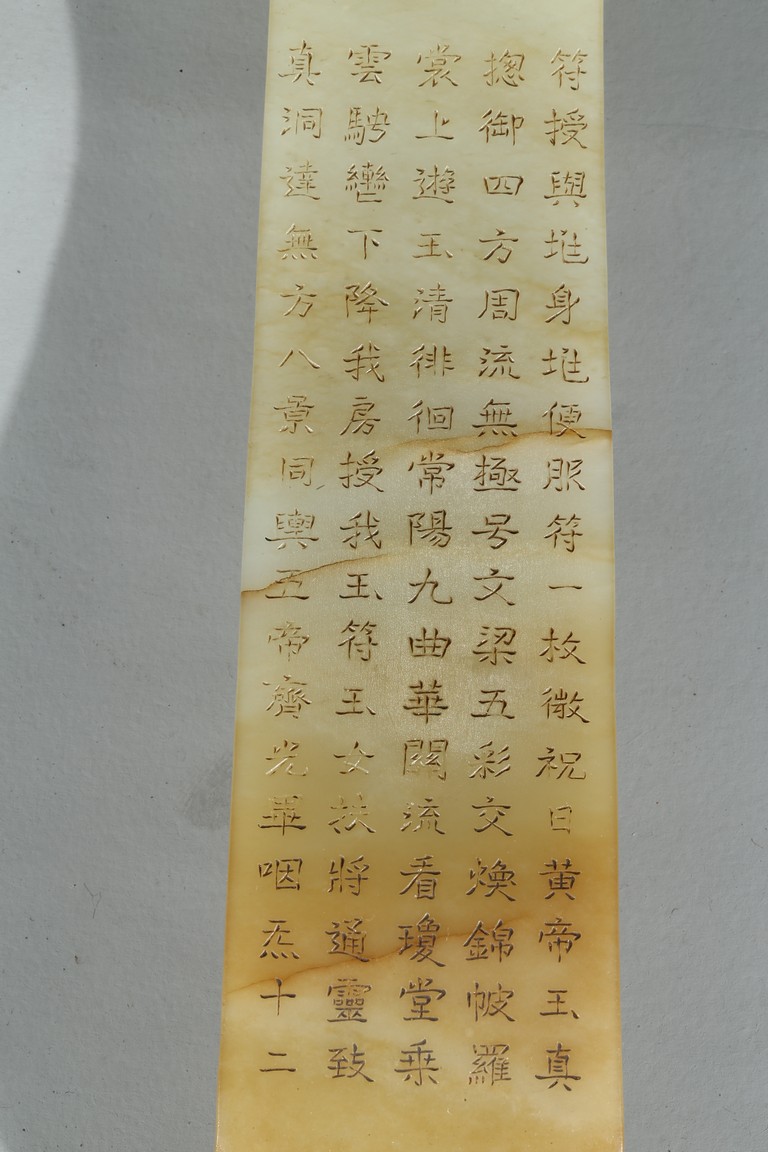 符授與身便服符一枚微祝曰黃帝玉真
揔御四方周流無極号文梁五彩交煥錦帔羅
裳上遊玉清徘徊常陽九曲華關流看瓊堂乗
雲駃轡下降我房授我玉符玉女扶將通靈致
真洞達無方八景同輿五帝齊光畢咽炁十二